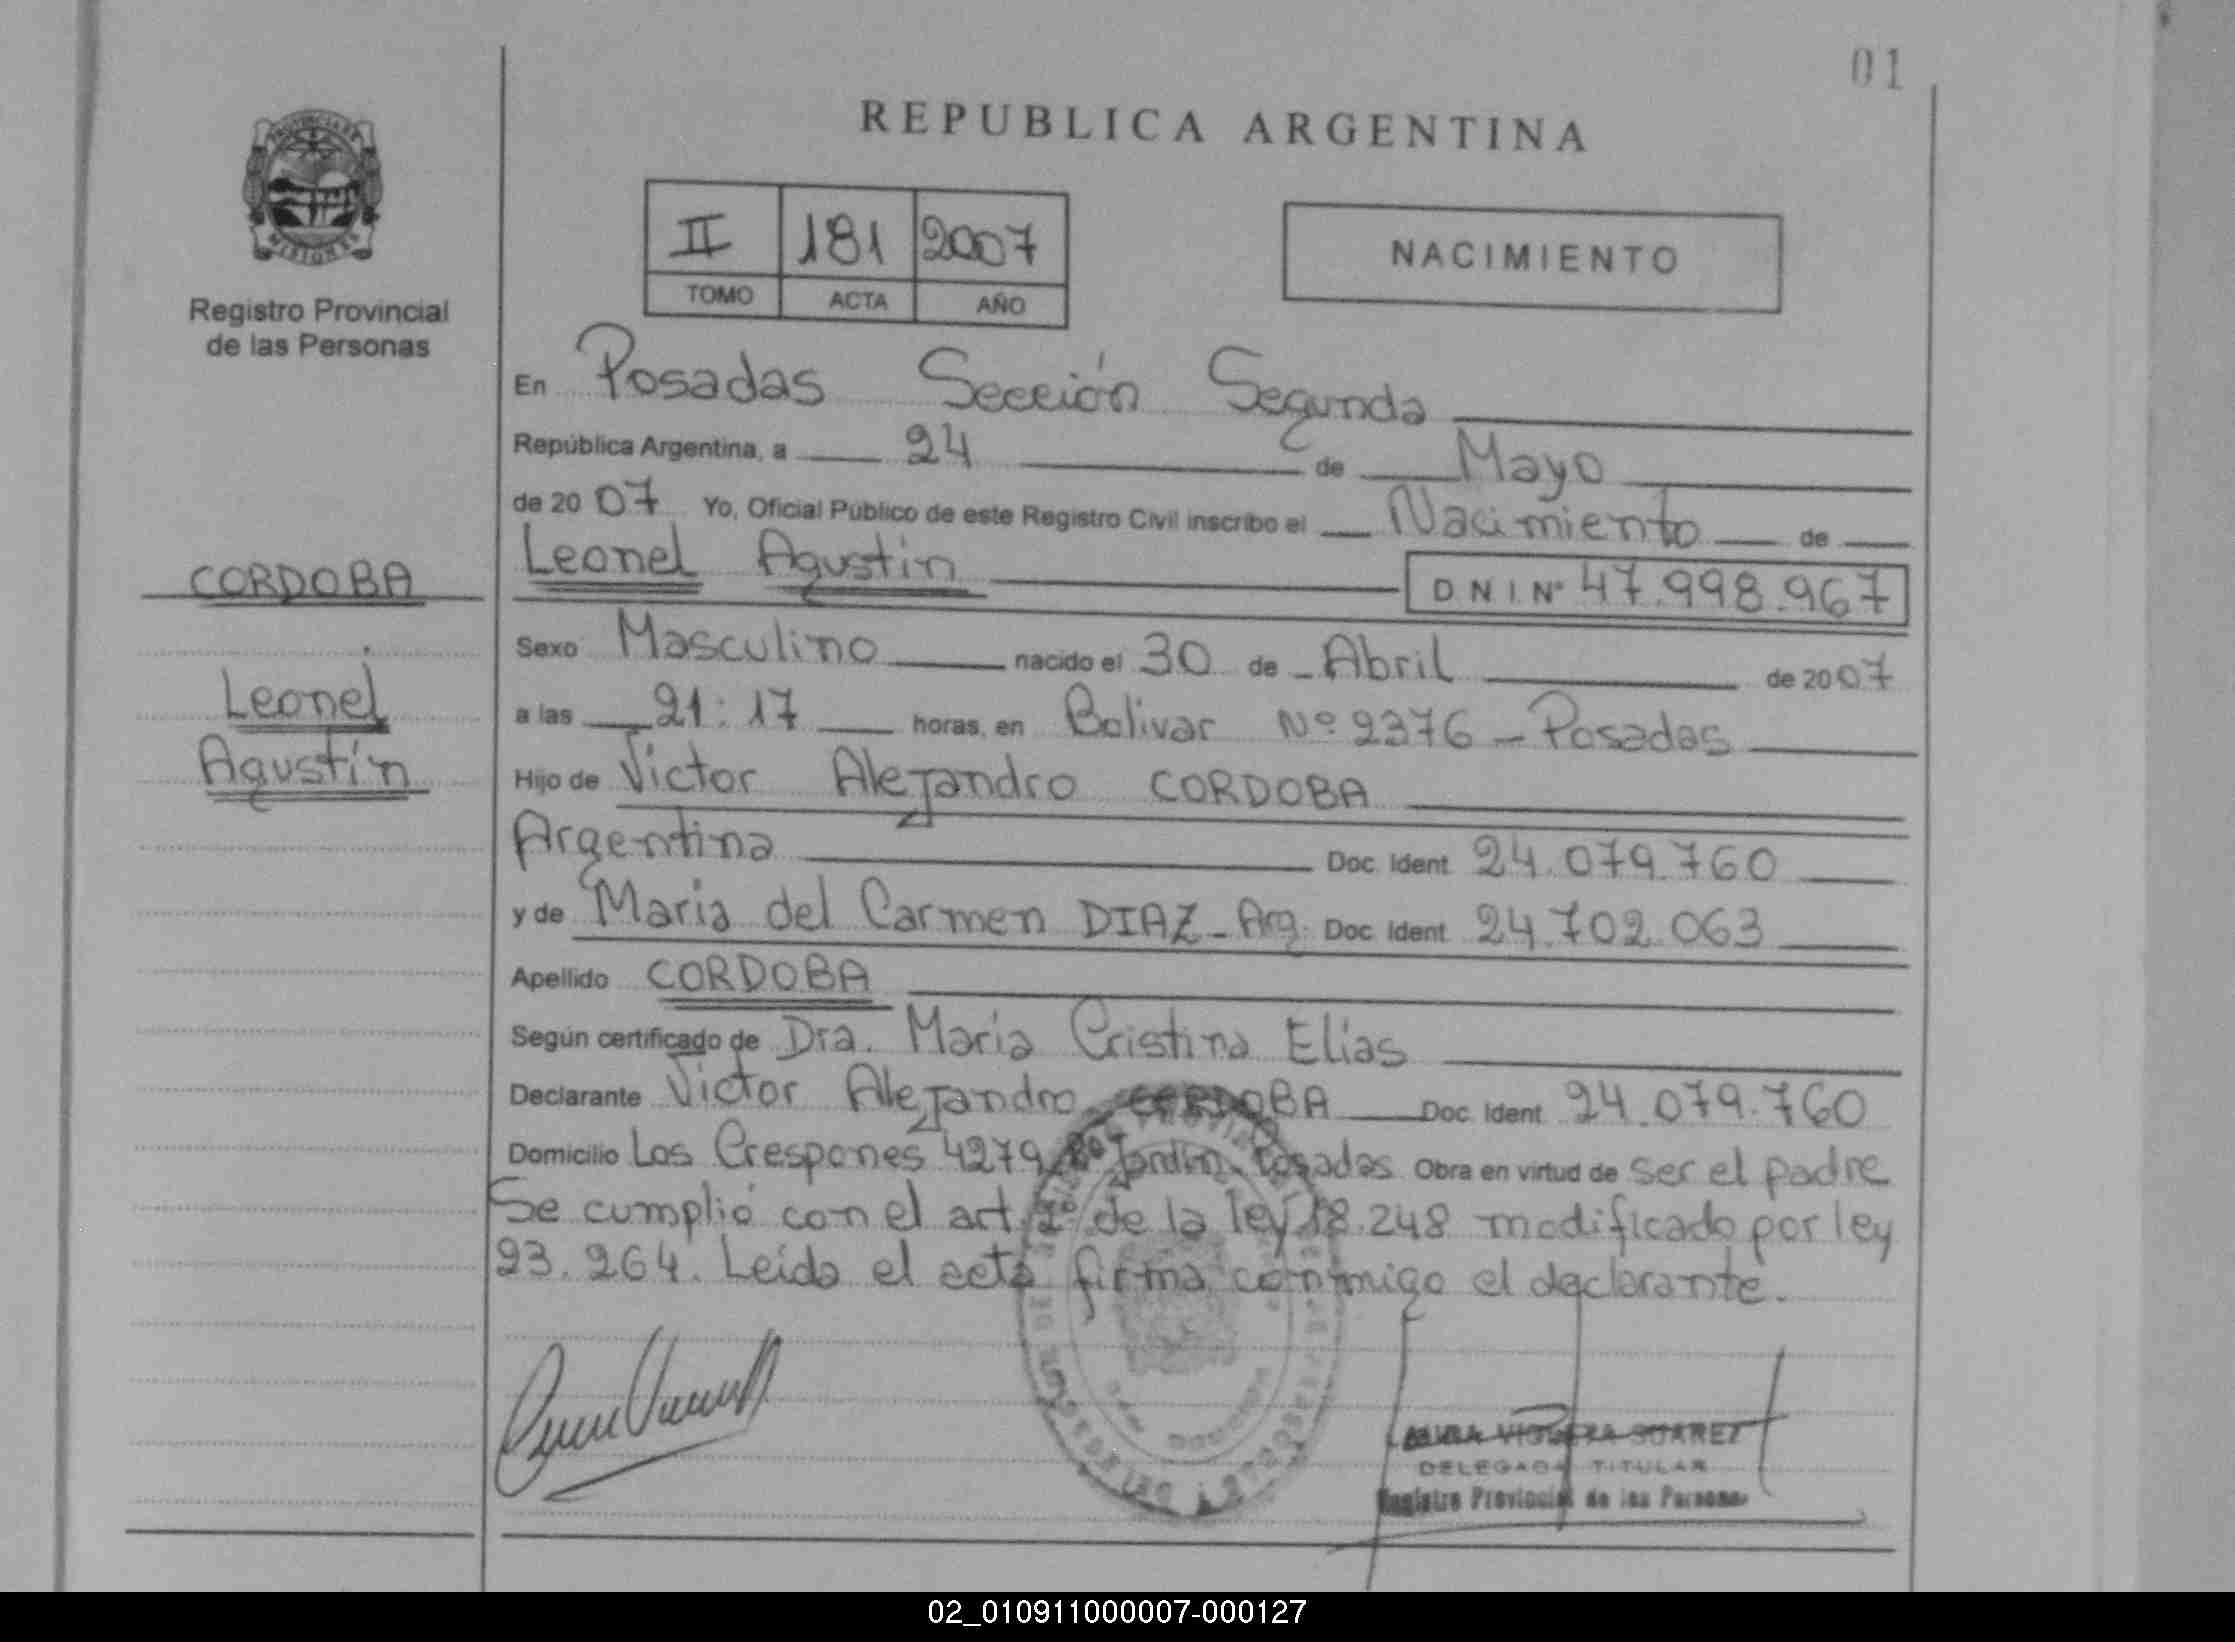 01
REPUBLICA ARGENTINA
PROVINCIA DE
MISIONES
Registro Provincial
de las Personas
II 181 2007
TOMO ACTA AÑO
NACIMIENTO
En Posadas Sección Segunda
República Argentina, a 24 de Mayo
de 20 07 Yo, Oficial Público de este Registro Civil inscribo el Nacimiento de
Leonel Agustin D N I. Nº 47.998.967
CORDOBA
Leonel
Agustín
Sexo Masculino nacido el 30 de Abril de 20 07
a las 21:17 horas, en Bolivar Nº 2376 - Posadas
Hijo de Victor Alejandro CORDOBA
Argentina Doc. Ident. 24.079.760
y de Maria del Carmen DIAZ - Arg. Doc. Ident. 24.702.063
Apellido CORDOBA
Según certificado de Dra. María Cristina Elías
Declarante Victor Alejandro CORDOBA Doc. Ident. 24.079.760
Domicilio Los Crespones 4279 Bº Jardín - Posadas Obra en virtud de ser el padre
Se cumplió con el art. 2º de la ley 18.248 modificado por ley
23.264. Leída el acta firma conmigo el declarante.
SUAREZ
DELEGADA TITULAR
Registro Provincial de las Personas
02_010911000007-000127